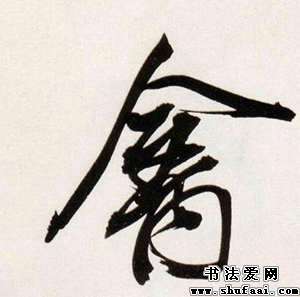 禽
书法爱网
www.shufaai.com